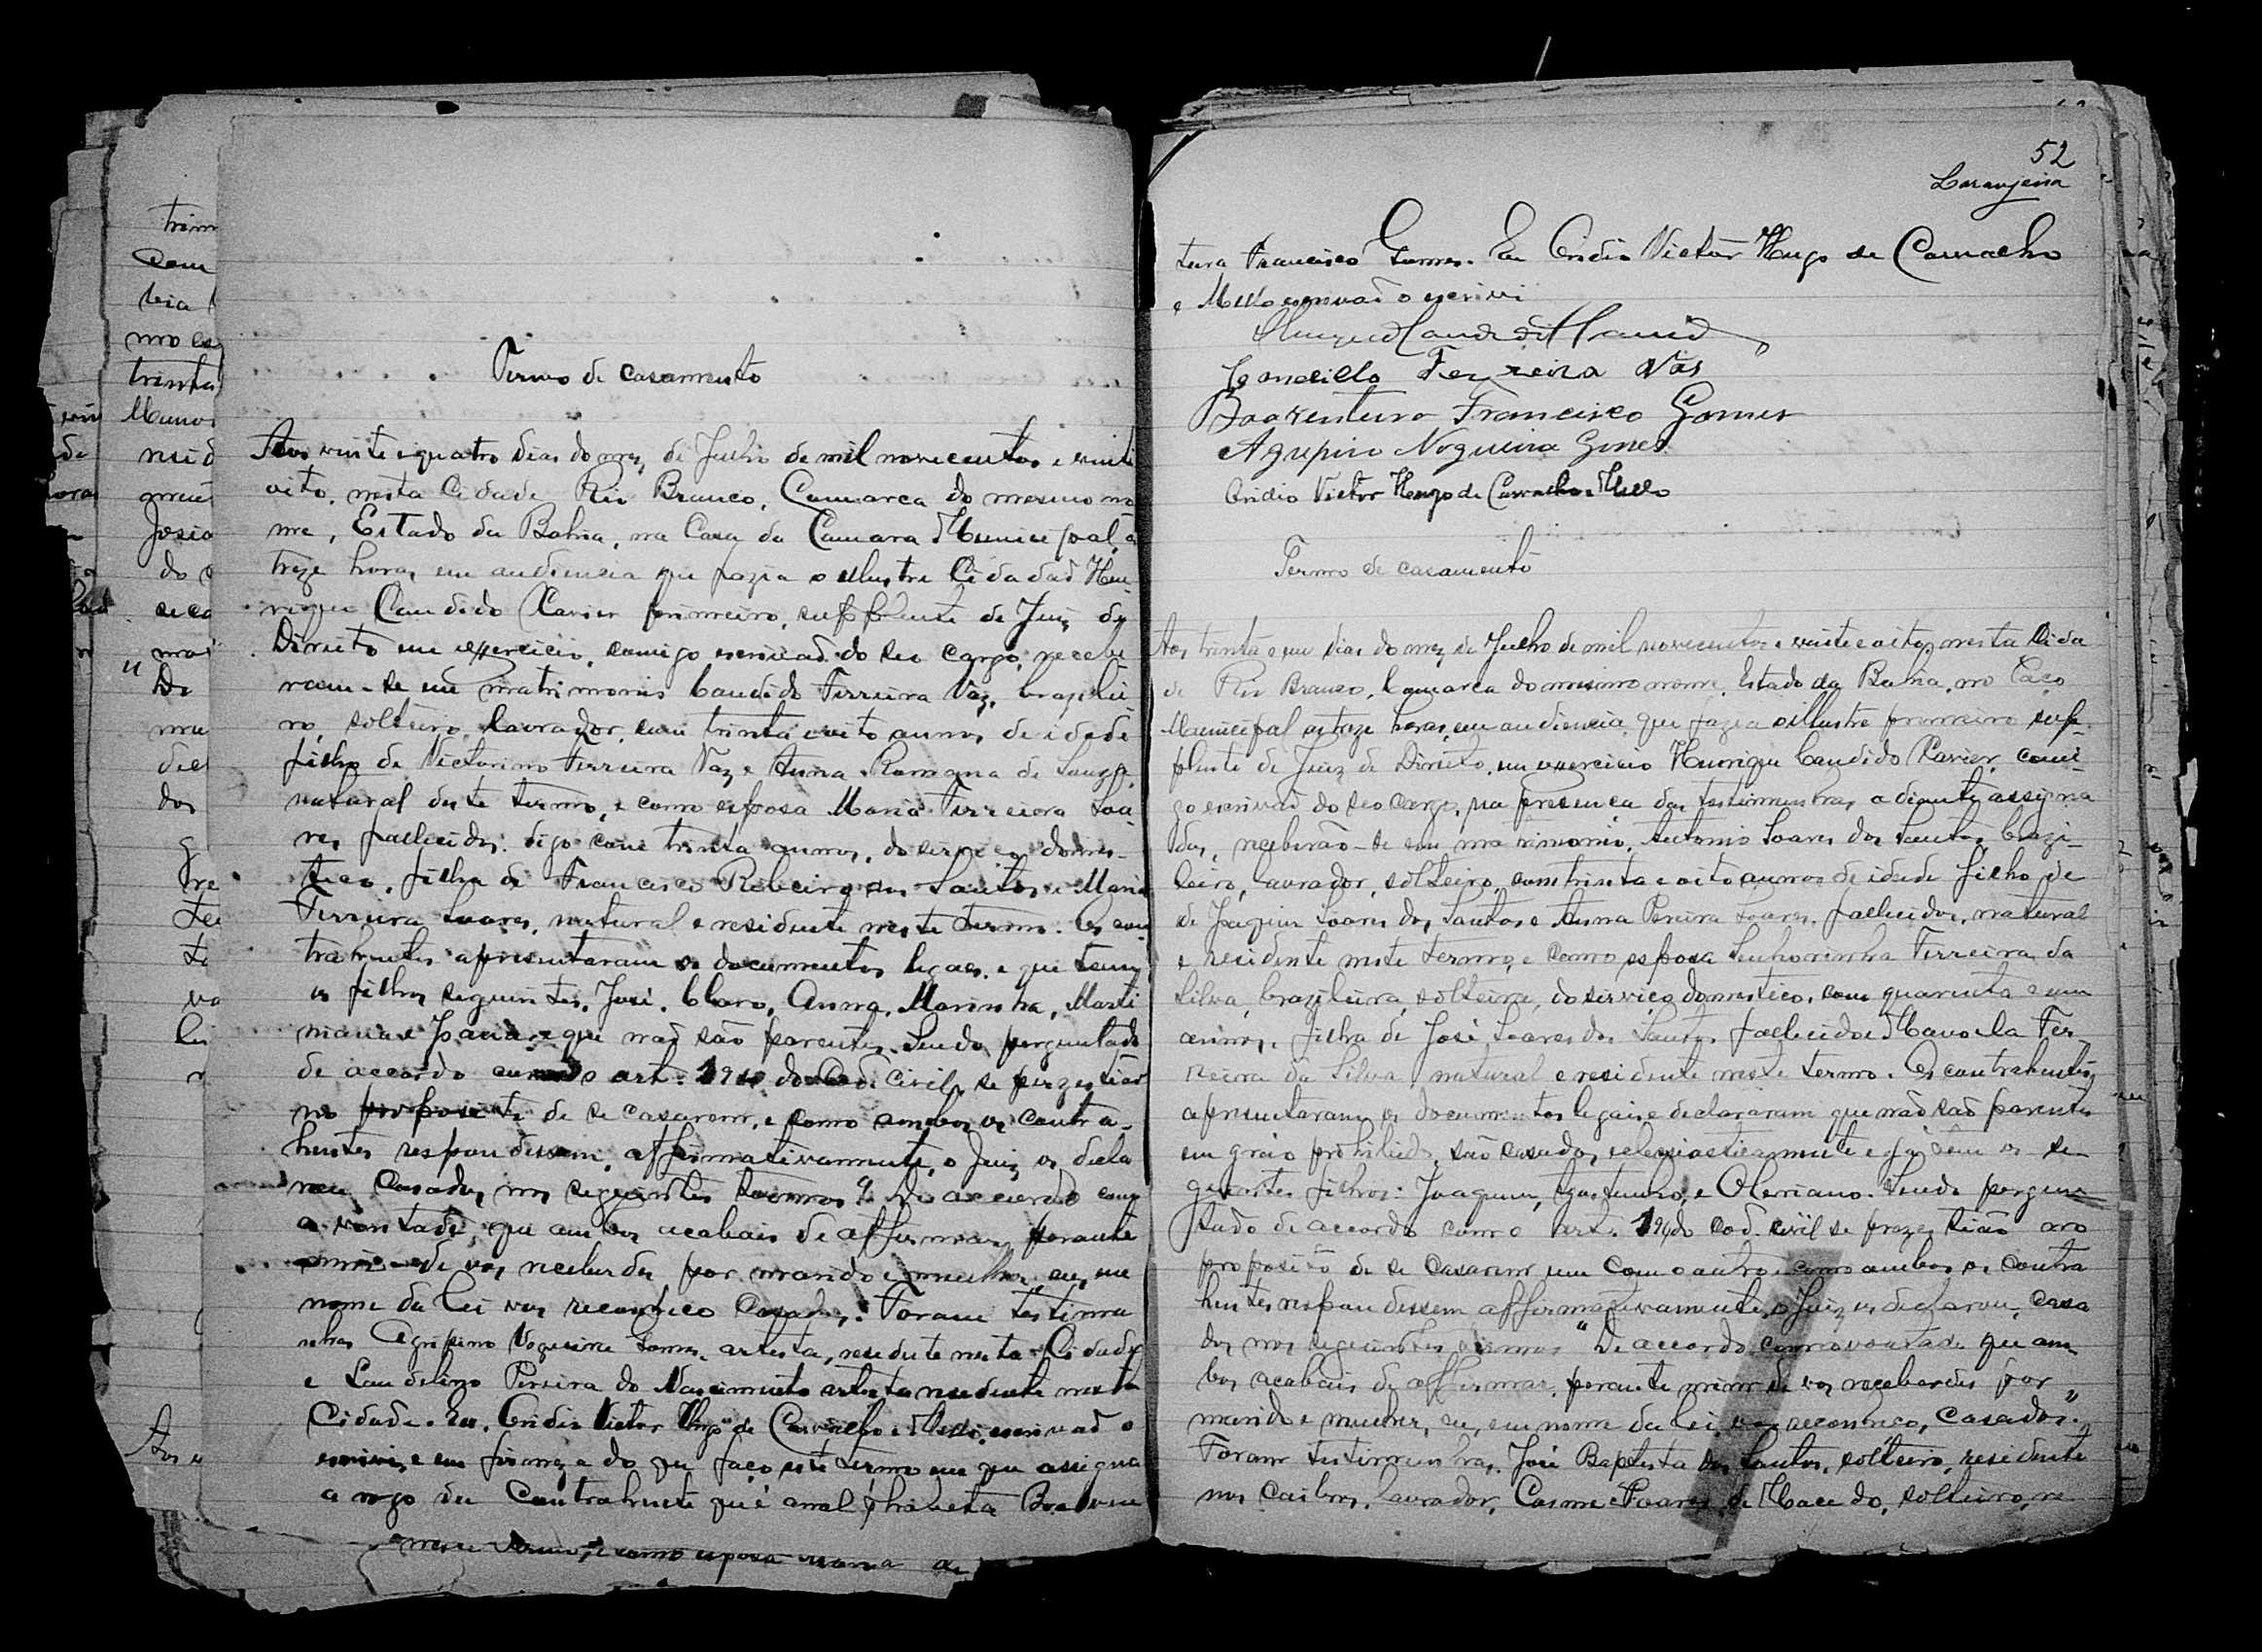 Termo de casamento
Aos vinte e quatro dias do mez de Julho de mil novecentos e vinte
oito, nesta Cidade Rio Branco, Comarca do mesmo no
me, Estado da Bahia, na Casa da Camara Municipal, ás
treze horas em audiencia que fazia o illustre Cidadaõ Hen
rique Candido Xavier primeiro, supplente de Juiz de
Direito em exercicio, comigo escrivaõ do seo cargo, recebe
ram-se em matrimonio Candido Ferreira Vaz, brazilei
ro, solteiro, lavrador, com trinta e oito annos de idade
filho de Victorino Ferreira Vaz e Anna Romana de Souza,
natural deste termo, e como esposa Maria Ferreira Soa
res fallecidos: digo com trinta annos, do serviço domes-
tico, filha de Francisco Ribeiro dos Santos e Maria
Ferreira Soares, natural e residente neste termo. Os con
trahentes apresentaram os documentos legaes, e que tem
os filhos seguintes, José, Claro, Anna, Marinha, Marti
niana e Joana, e que naõ são parentes. Sendo perguntado
de accordo com o art. 194 do Cod. Civil, se perzestiaõ
no proposito de se casarem, e como ambos os contra-
hentes respondessem, affirmativamente, o Juiz os decla
rou Casados, nos seguintes termos "De accordo com
a vontade, que ambos acabais de affirmar, perante
mim de vos receberdes por marido e mulher, eu, em
nome da Lei vos reconheço Casados". Foram testimu
nhas Agripino Nogueira Gomes, artista, residente nesta Cidade
e Laudelino Pereira do Nascimento artista residente nesta
Cidade. Eu, Victor Hugo de Carvalho e Mello, escrivaõ o
escrivi, e em firmeza do que faço este termo em que assigna
a rogo da Contrahente que é analphabeta Boaven
neste termo, e como esposa Maria de
52
Laranjeira
tura Francisco Gomes. Eu Victor Hugo de Carvalho
e Mello escrivaõ o escrivi
Candido Ferreira Vas
Boaventura Francisco Gomes
Agripino Nogueira Gomes
Victor Hugo de Carvalho e Mello
Termo de casamento
Aos trinta e um dias do mez de Julho de mil novecentos e vinte e oito, nesta Cida
de Rio Branco, Comarca do mesmo nome, Estado da Bahia, no Paço
Municipal as treze horas, em audiencia que fazia o illustre primeiro sup-
plente de Juiz de Direito, em exercicio Henrique Candido Xavier, comi-
go escrivaõ do seo cargo, na presença das testimunhas adiante assigna
das, receberão-se em matrimonio, Antonio Soares dos Santos, brazi-
leiro, lavrador, solteiro, com trinta e oito annos de idade filho de
de Joaquim Soares dos Santos e Anna Pereira Soares, fallecidos, natural
e residente neste termo, e como esposa Senhorinha Ferreira da
Silva, brazileira, solteira, do serviço domestico, com quarenta e um
annos, filha de José Soares dos Santos, fallecido e Manoela Fer
reira da Silva, natural e residente neste termo. Os contrahentes
apresentaram os documentos legais e declararam que naõ saõ parentes
em gráo prohibido, são casados, eclesiasticamente e já têm os se
guintes filhos: Joaquim, e Oleriano. Sendo pergun
tado de accordo com o art. 194 do cod. civil se prezestiaõ no
proposito de se casarem um com o outro e como ambos os contra
hentes respondessem affirmativamente, o Juiz os declarou, casa
dos nos seguintes termos "De accordo com a vontade que am
bos acabais de affirmar, perante mim de vos receberdes por
marido e mulher, eu, em nome da Lei vos reconheço, casados".
Foram testimunhas, José Baptista dos Santos, solteiro, residente
nos Caibros, lavrador, Cosme Soares de Macedo, solteiro, re